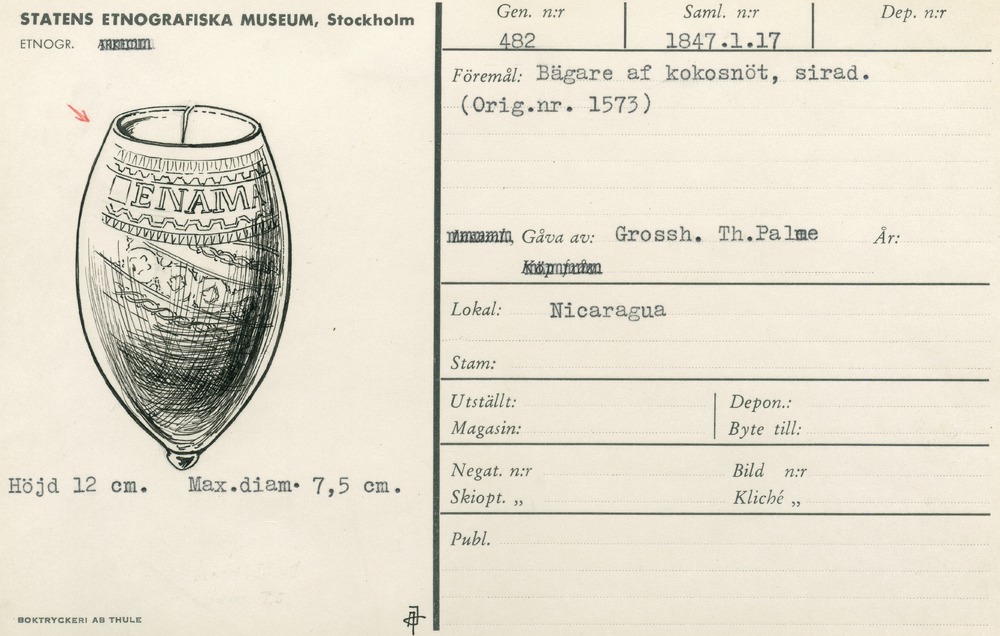 STATENS ETNOGRAFISKA MUSEUM, Stockholm
ETNOGR.
ENAMA
Höjd 12 cm. Max.diam. 7,5 cm.
BOKTRYCKERI AB THULE
Gen. n:r Saml. n:r Dep. n:r
482 1847.1.17
Föremål: Bägare af kokosnöt, sirad.
(Orig.nr. 1573)
Gåva av: Grossh. Th.Palme År:
Lokal: Nicaragua
Stam:
Utställt: Depon.:
Magasin: Byte till:
Negat. n:r Bild n:r
Skiopt. „ Kliché „
Publ.